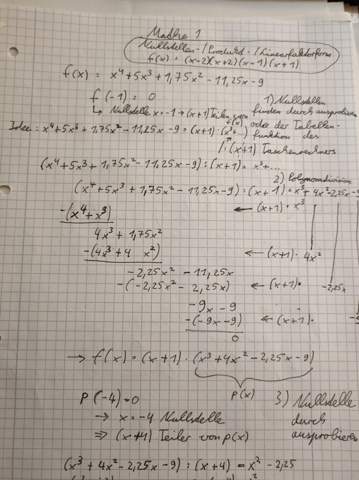 Mathe 1
Nullstellen-/Produkt-/Linearfaktorform
f(x) = (x-2)(x+2)(x-1)(x+1)
f(x) = x⁴+5x³+1,75x²-11,25x-9
f(-1) = 0
↳ Nullstelle x=-1 → (x+1) Teiler von f(x)
1) Nullstellen
finden durch ausprobieren
oder der Tabellen-
funktion des
Taschenrechners
Idee: x⁴+5x³+1,75x²-11,25x-9 = (x+1)·(x³+...)
|:(x+1)
(x⁴+5x³+1,75x²-11,25x-9):(x+1) = x³+...
2) Polynomdivision
(x⁴+5x³+1,75x²-11,25x-9):(x+1) = x³+4x²-2,25x-9
-(x⁴+x³) ← (x+1)·x³
4x³+1,75x²
-(4x³+4x²) ← (x+1)·4x²
-2,25x²-11,25x
-(-2,25x²-2,25x) ← (x+1)· -2,25x
-9x-9
-(-9x-9) ← (x+1)·
0
→ f(x) = (x+1)·(x³+4x²-2,25x-9)
p(x)
p(-4)=0
→ x=-4 Nullstelle
⇒ (x+4) Teiler von p(x)
3) Nullstelle
durch
ausprobieren
(x³+4x²-2,25x-9):(x+4) = x²-2,25